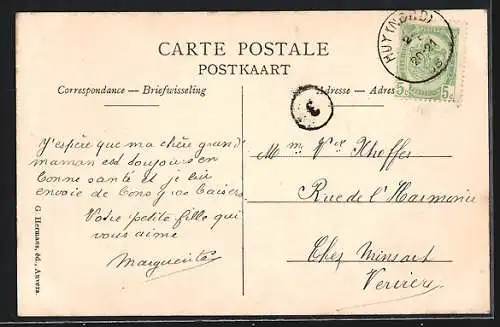 CARTE POSTALE
POSTKAART
Correspondance — Briefwisseling
Adresse — Adres
HUY (NORD)
20-21
5c 5c
3
J'espère que ma chère grand
maman est toujours en
bonne santé et je lui
envoie de bons gros baisers
Votre petite fille qui
vous aime
Marguerite
Mme Vve
Rue de l'Harmonie
Chez Minsart
Verviers
G. Hermans, éd., Anvers.